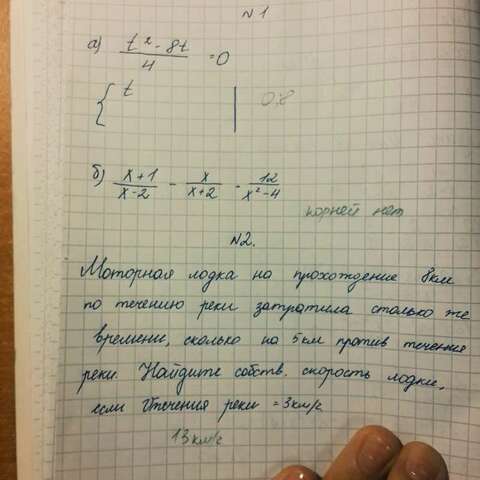 №1
а) (t² - 8t)/4 = 0
{ t | 0;8
б) (x+1)/(x-2) - x/(x+2) - 12/(x²-4)
корней нет
№2.
Моторная лодка на прохождение 8км
по течению реки затратила столько же
времени, сколько на 5км против течения
реки. Найдите собств. скорость лодки,
если Vтечения реки = 3км/с
13км/с